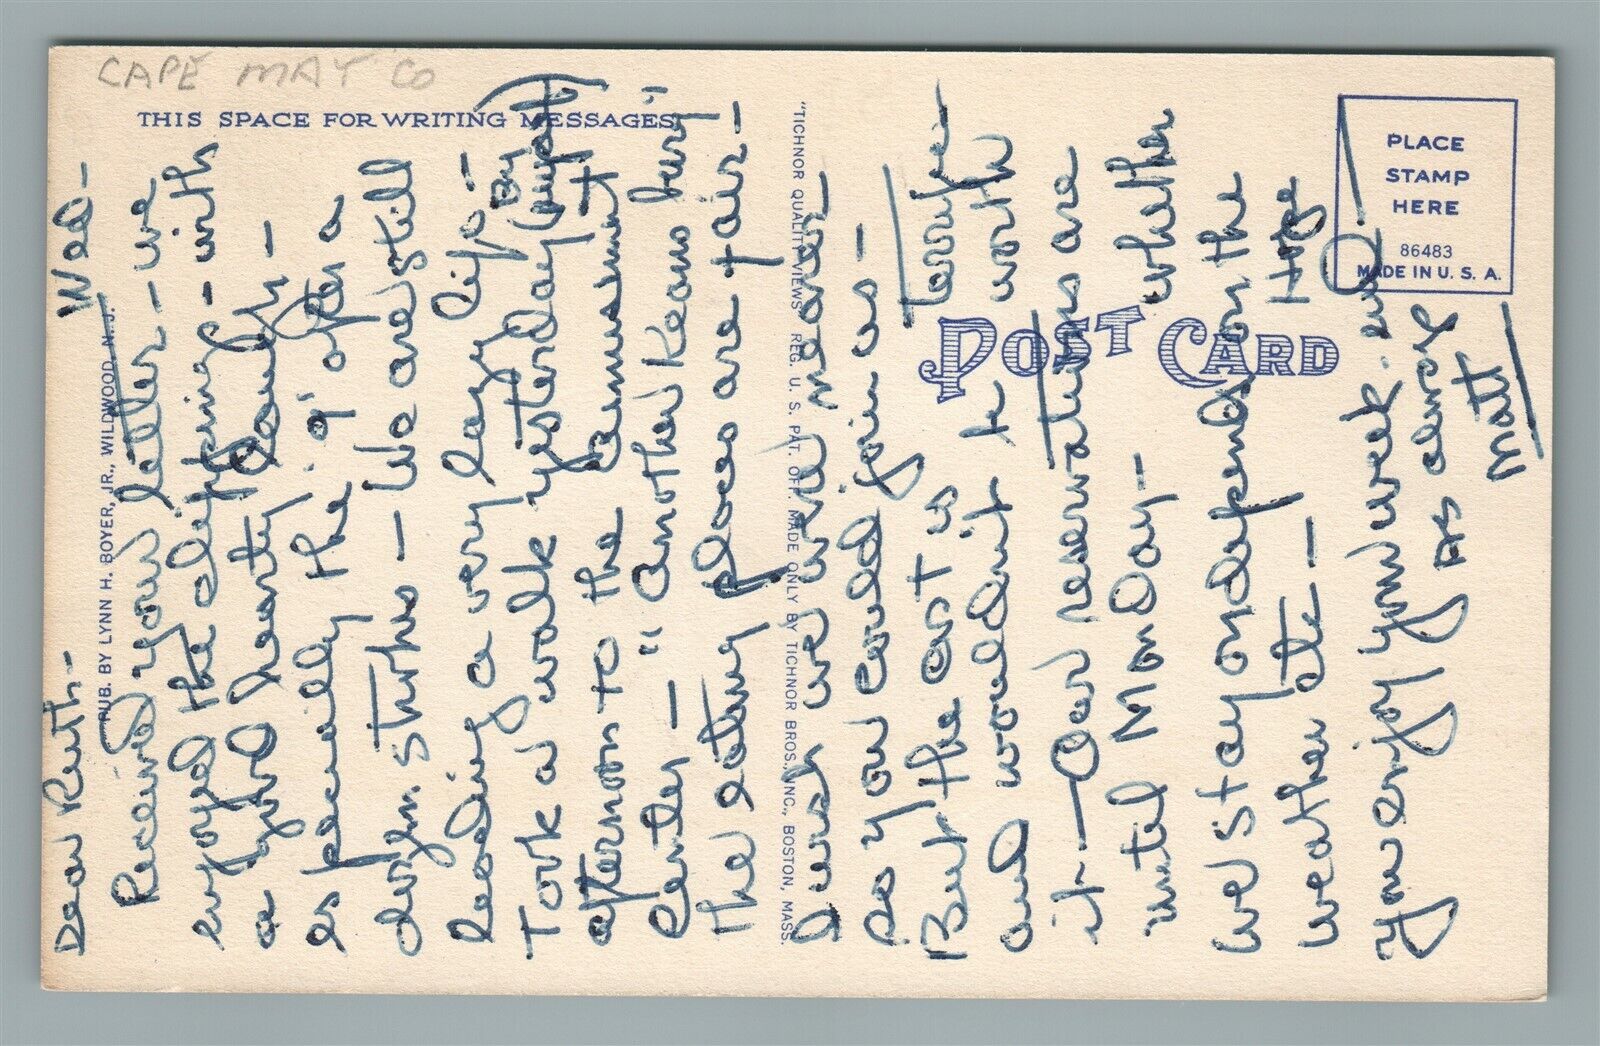 CAPE MAY CO
THIS SPACE FOR WRITING MESSAGES
PUB. BY LYNN H. BOYER, JR., WILDWOOD, N. J.
"TICHNOR QUALITY VIEWS" REG. U. S. PAT. OFF. MADE ONLY BY TICHNOR BROS., INC., BOSTON, MASS.
POST CARD
PLACE
STAMP
HERE
86483
MADE IN U. S. A.
Wed-
Dear Ruth-
Received your letter - we
enjoyed the clipping - with
a good hearty laugh -
especially the after a
strokes - We are still
leading a very lazy life -
Took a walk yesterday (By myself)
afternoon to the Amusement
Center - "another Keansburg"
The eating places are fair -
Wish we were nearer
so you could join us -
But the cost is terrific -
and wouldn't be worth
it - Our reservations are
until Monday - whether
we stay on depends on the
weather etc - Hope
you enjoy your week-end!
As always
Matt